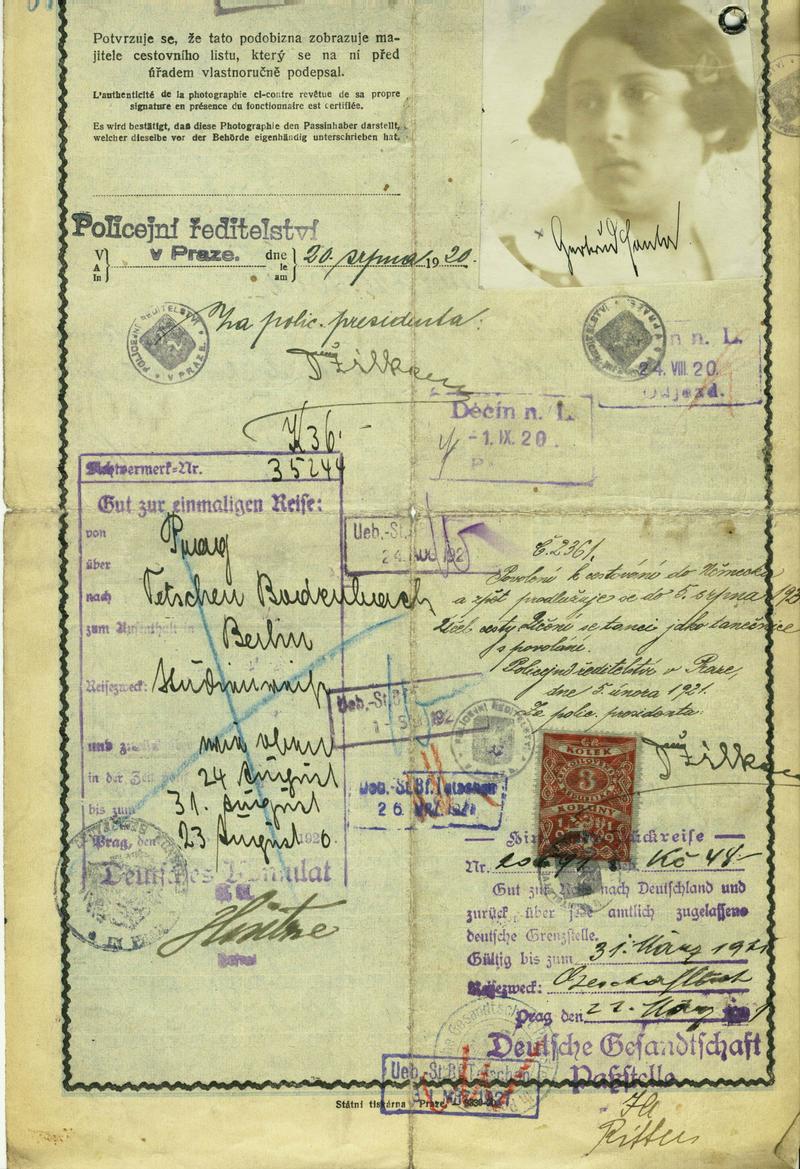 Potvrzuje se, že tato podobizna zobrazuje ma-
jitele cestovního listu, který se na ní před
úřadem vlastnoručně podepsal.
L'authenticité de la photographie ci-contre revêtue de sa propre
signature en présence du fonctionnaire est certifiée.
Es wird bestätigt, daß diese Photographie den Passinhaber darstellt,
welcher dieselbe vor der Behörde eigenhändig unterschrieben hat.
Policejní ředitelství
V v Praze. dne 20. srpna 1920.
A le
In am
Za polic. presidenta:
POLICEJNÍ ŘEDITELSTVÍ V PRAZE
n n. L.
24. VIII. 20.
Odjezd.
Děcín n. L.
-1. IX. 20.
K 36.-
Sichtvermerk-Nr. 35244
Gut zur einmaligen Reise:
von Prag
über
nach Tetschen Bodenbach
zum Aufenthalt in Berlin
Reisezweck:
und
in der Zeit 24 August
bis zum 31. August
Prag, den 23 August 1920
Deutsches Konsulat
Ueb.-St.
24. AUG 192
Č. 2361.
Povolení k cestování do Německa
a zpět prodlužuje se do 5. srpna 192
Účel cesty: jako tanečnice
z povolání.
Policejní ředitelství v Praze,
dne 5. února 1921.
Za polic. presidenta:
Ueb.-St.
Ueb.-St.Bf.Tetschen
26
KOLEK
3
KORUNY
Nr. Kč 48-
Gut zur Reise nach Deutschland und
zurück, über jede amtlich zugelassene
deutsche Grenzstelle.
Gültig bis zum 31. März 1921
Reisezweck:
Prag den 22. März
Deutsche Gesandtschaft
Paßstelle
Ueb.-St.Bf.Tetschen
Státní tiskárna Praze.